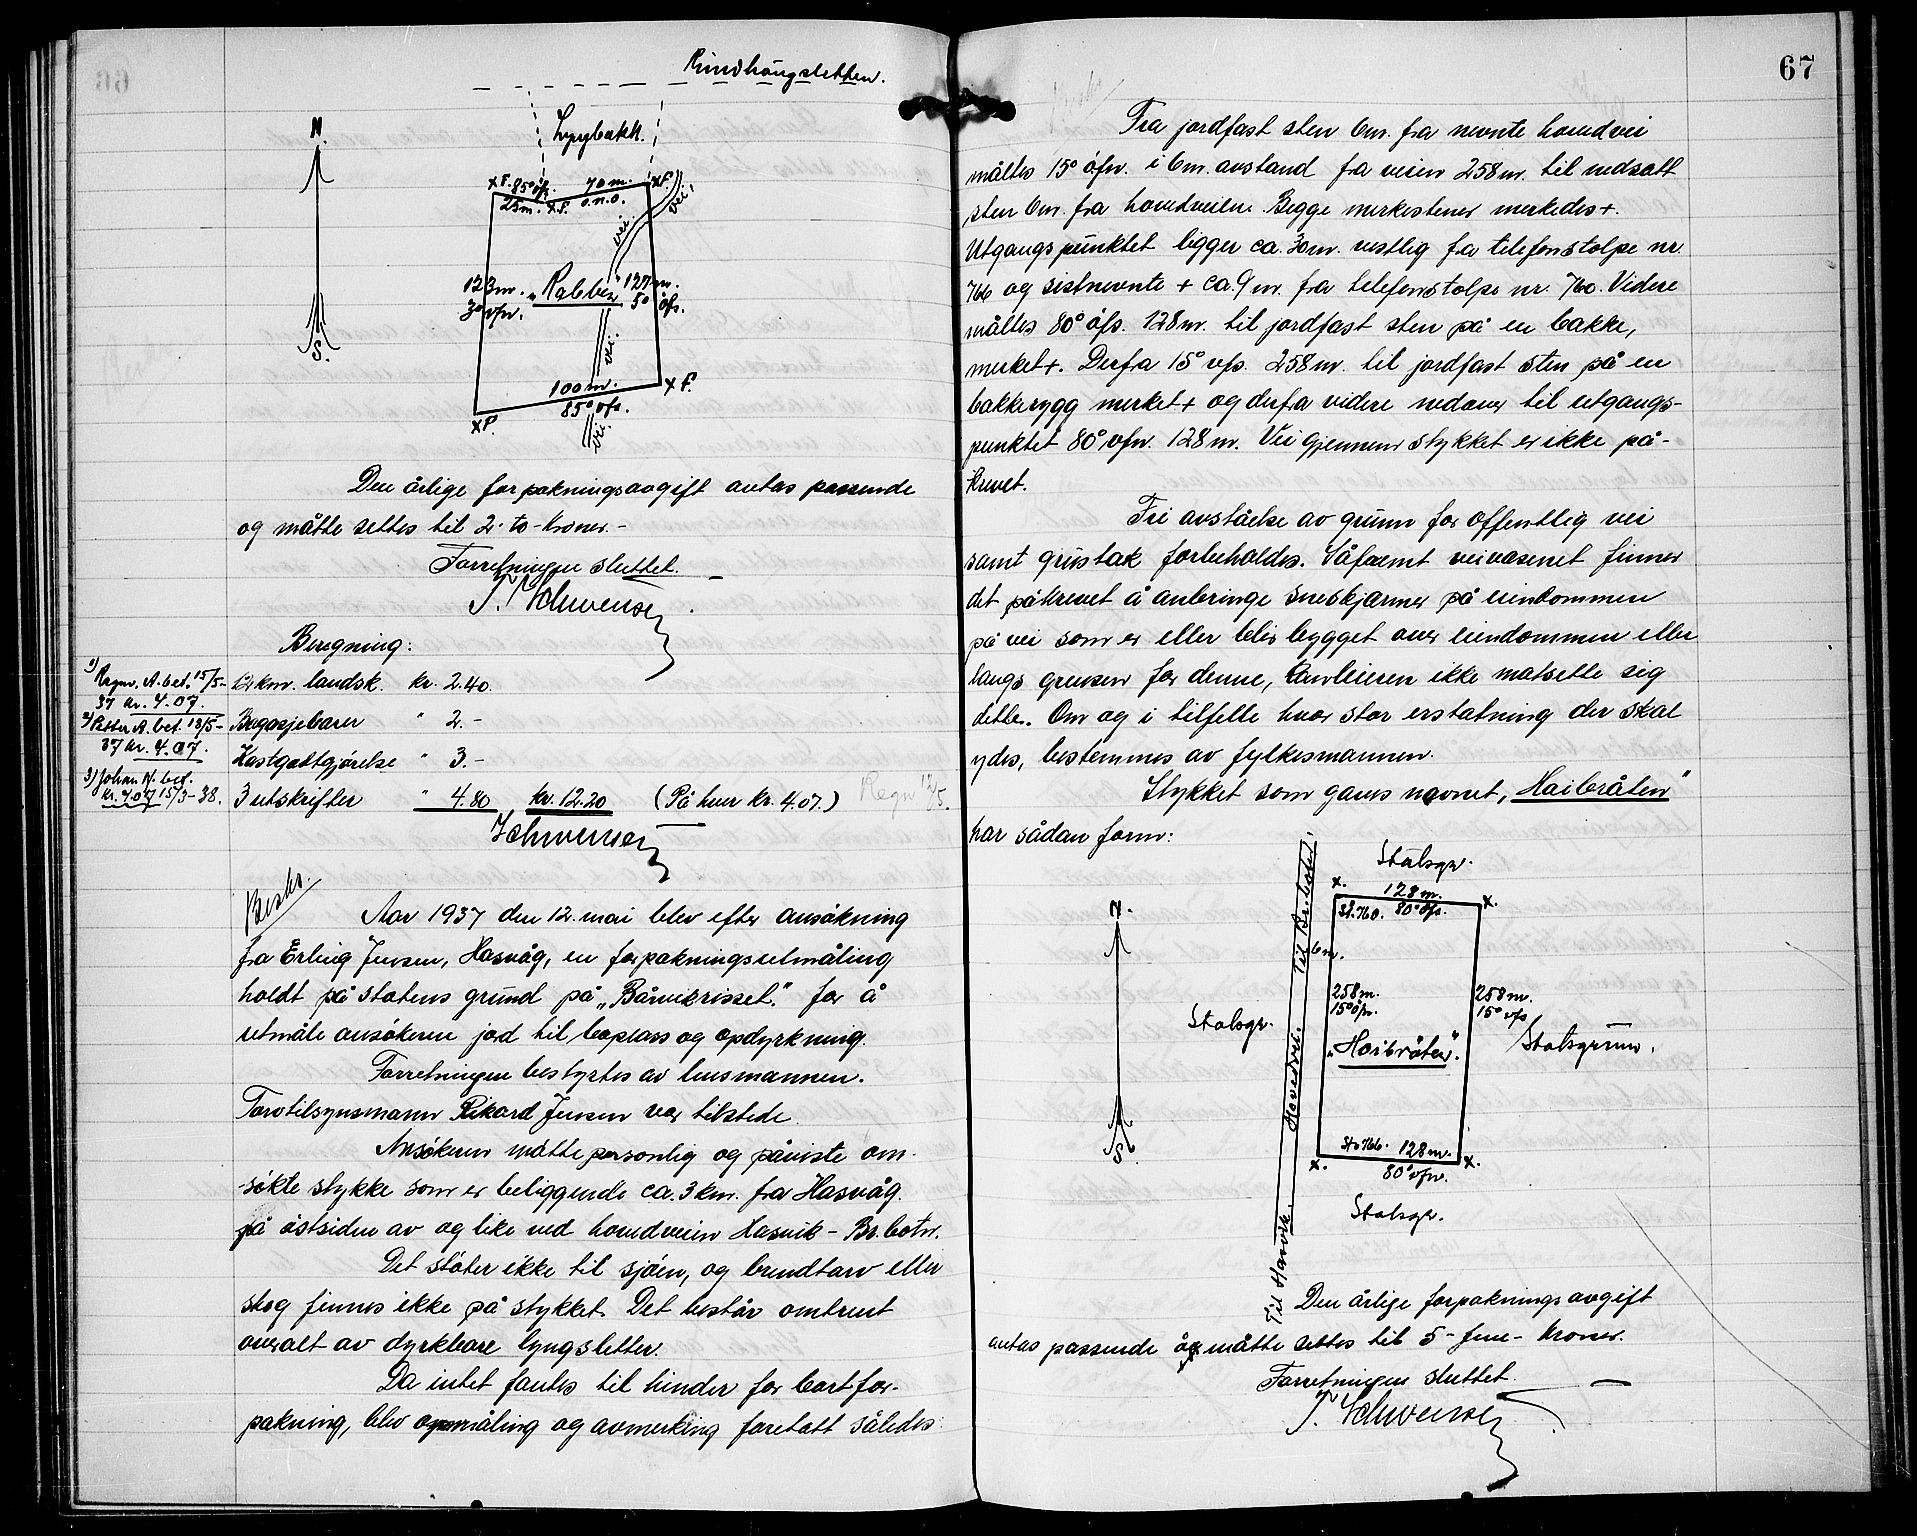 Rundhaugsletten.
Lyngbakk.
N.
x F. 85° øfs. 70 m. x F.
25 m. x F. o.n.o.
vei. vei.
123 m. "Rabben" 127 m.
3° vfn. 5° øfs.
S.
vei.
100 m. x F.
85° vfs.
x F. vei.
Den årlige forpakningsavgift antas passende
og måtte settes til 2- to- kroner.-
Forretningen sluttet.
T. Schwensen
Beregning:
1) Regn. A. bet. 15/5-
37 kr. 4.07.
12 km. landsk. kr. 2.40.
2) Petter A. bet 13/5-
37 kr. 4.07.
Bugasjebærer " 2.-
Kostgodtgjørelse " 3.-
3) Johan N. bet.
kr. 4.07 15/3-38.
3 utskrifter " 4.80 kr. 12.20 (På hver kr. 4.07.) Regn 12/5.
Schwensen
Beskr.
Aar 1937 den 12. mai blev efter ansøkning
fra Erling Jensen, Hasvåg, en forpakningsutmåling
holdt på statens grund på "Bårvikrisset." for å
utmåle ansøkeren jord til boplass og opdyrkning.
Forretningen bestyrtes av lensmannen.
Torvtilsynsmann Rikard Jensen var tilstede.
Ansøkeren møtte personlig og påviste om-
-søkte stykke som er beliggende ca. 3 km. fra Hasvåg.
på østsiden av og like ved hovedveien Hasvik - Br. botn.
Det støter ikke til sjøen, og brendtorv eller
skog finnes ikke på stykket. Det består omtrent
overalt av dyrkbare lyngsletter.
Da intet fantes til hinder for bortfor-
pakning, blev opmåling og avmerking foretatt således:
67
Fra jordfast sten 6 m. fra nevnte hovedvei
måltes 15° øfn. i 6 m. avstand fra veien 258 m. til nedsatt
sten 6 m. fra hovedveien. Begge merkestener merkedes +.
Utgangspunktet ligger ca. 30 m. vestlig fra telefonstolpe nr.
766 og sistnevnte + ca. 9 m. fra telefonstolpe nr. 760. Videre
måltes 80° øfs. 128 m. til jordfast sten på en bakke,
merket +. Derfra 15° vfs. 258 m. til jordfast sten på en
bakkerygg merket + og derfra videre nedover til utgangs-
punktet 80° vfn. 128 m. Vei gjennem stykket er ikke på-
krevet.
Fri avståelse av grunn for offentlig vei
samt grustak forbeholdes. Såfremt veivæsenet finner
det påkrevet å anbringe sneskjærmer på eiendommen
på vei som er eller blir bygget over eiendommen eller
langs grensen for denne, kan eieren ikke motsette sig
dette. Om og i tilfelle hvor stor erstatning der skal
ydes, bestemmes av fylkesmannen.
Stykket som gaves navnet, "Haibråten"
har sådan form:
N.
Statsgr.
x. 128 m. x.
St. 760. 80° øfs.
6 m.
Til Br. botn
258 m. 258 m.
15° øfn. 15° vfs
Statsgr.
"Haibråten". Statsgrunn.
Hovedvei.
S.
St. 766. 128 m.
x. 80° vfn. x.
Statsgr.
Til Hasvik.
Den årlige forpakningsavgift
antas passende og måtte settes til 5- fem- kroner.
Forretningen sluttet.
T. Schwensen